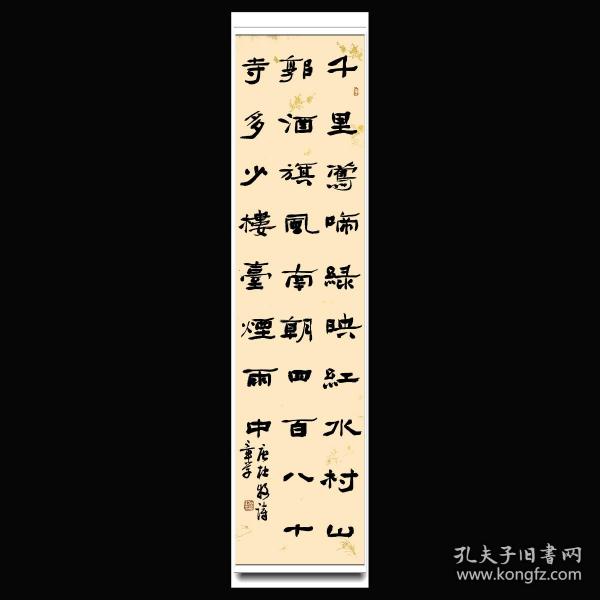 千里鶯啼綠映紅水村山
郭酒旗風南朝四百八十
寺多少樓臺煙雨中
唐杜牧詩
孔夫子旧書网
www.kongfz.com